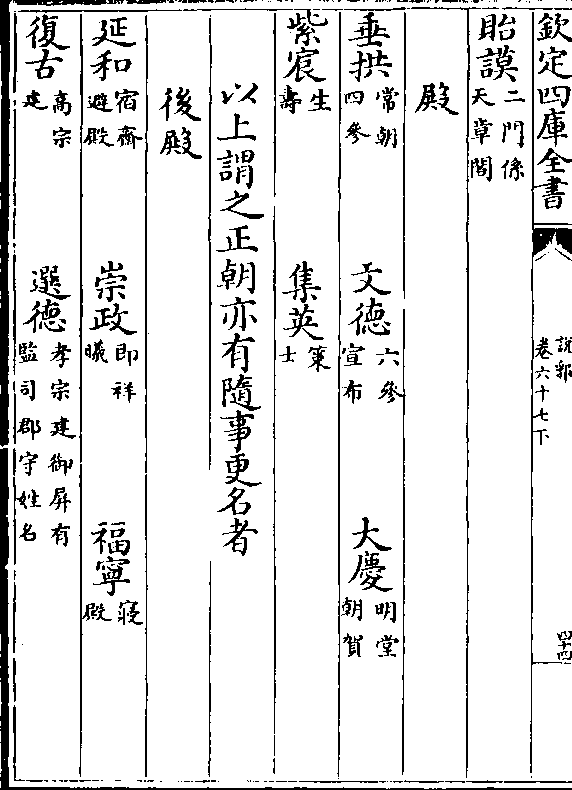 欽定四庫全書
說郛
卷六十七下
四十四
貽謨二門係天章閣
殿
垂拱常朝四參 文德六參宣布 大慶明堂朝賀
紫宸生壽 集英策士
以上謂之正朝亦有隨事更名者
後殿
延和宿齋避殿 崇政即祥曦 福寧寢殿
復古高宗建 選德孝宗建御屏有監司郡守姓名